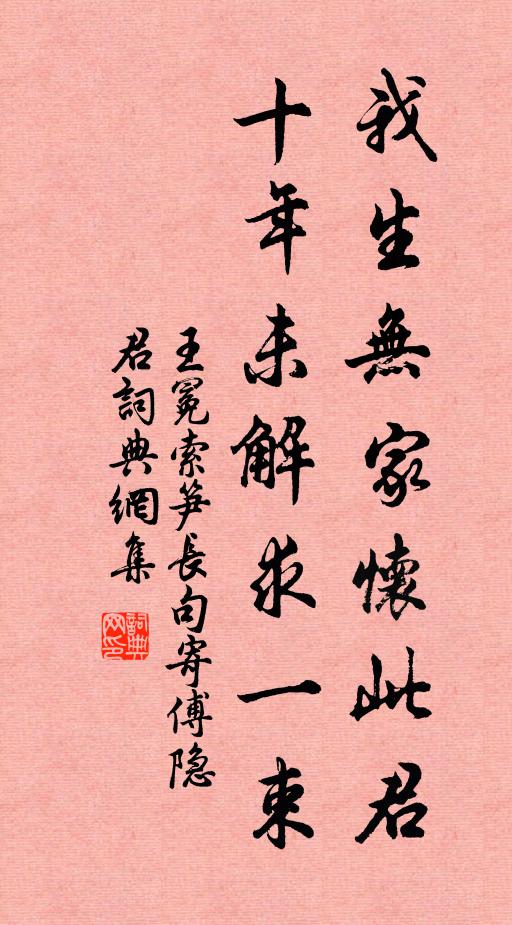 我生無家懷此君
十年未解求一束
王冕索笋長句寄傅隐
君詞典網集
詞典
网印